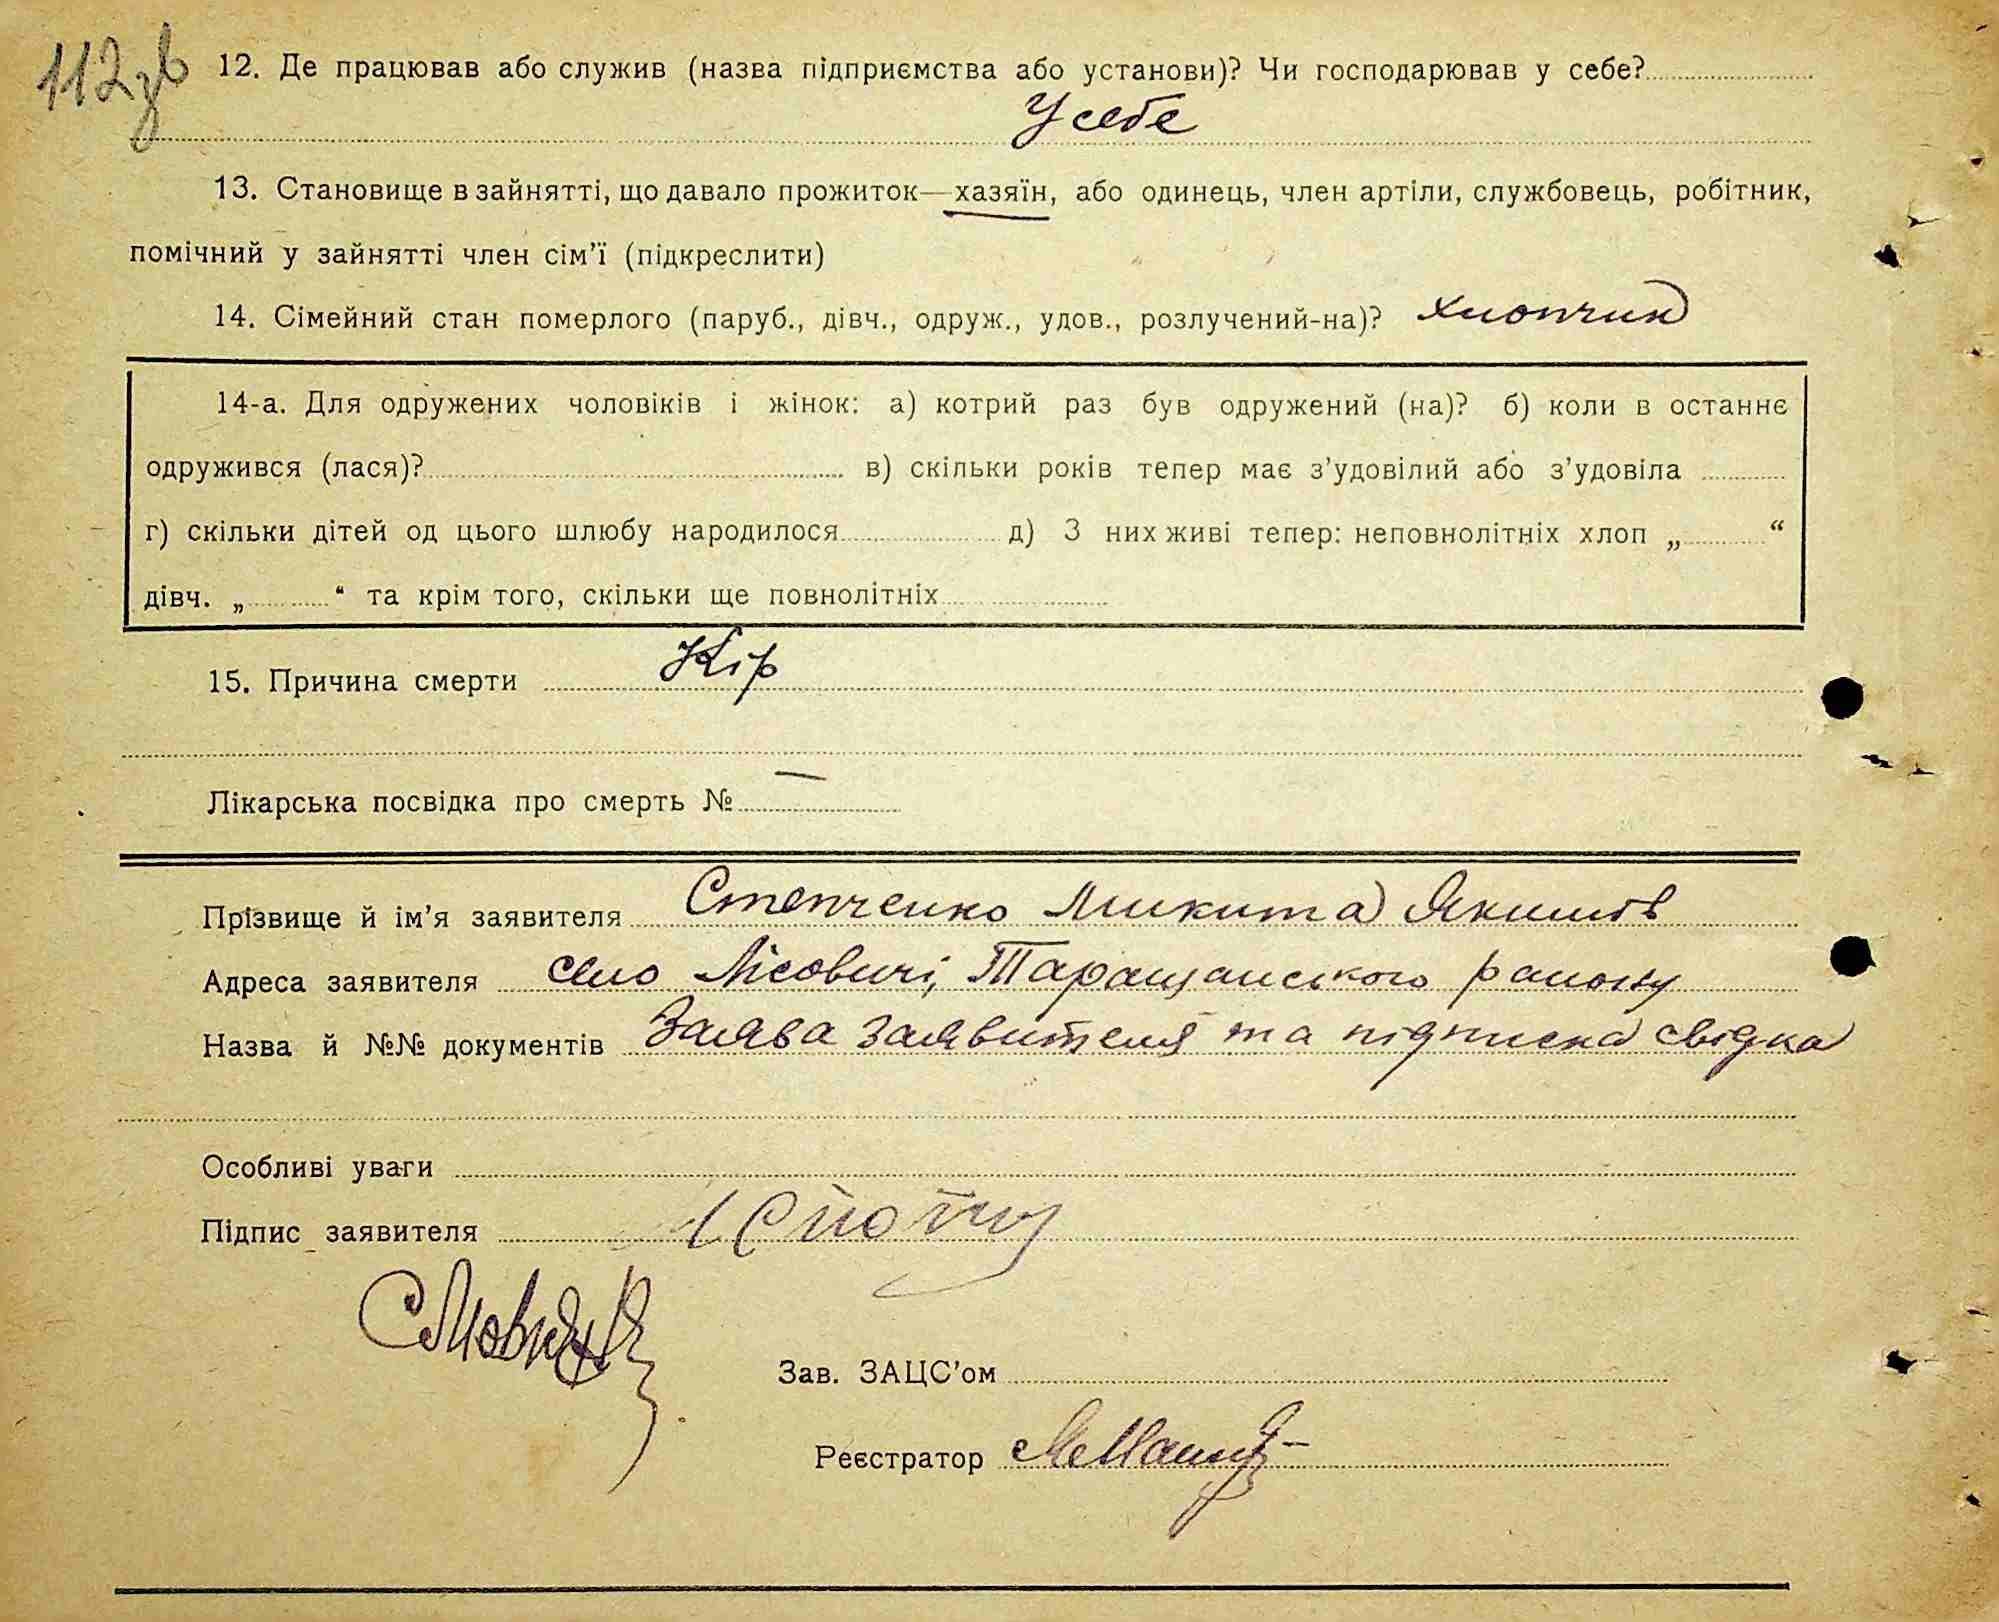 112зв
12. Де працював або служив (назва підприємства або установи)? Чи господарював у себе?
У себе
13. Становище в зайнятті, що давало прожиток—хазяїн, або одинець, член артіли, службовець, робітник,
помічний у зайнятті член сім'ї (підкреслити)
14. Сімейний стан померлого (паруб., дівч., одруж., удов., розлучений-на)? хлопчик
14-а. Для одружених чоловіків і жінок: а) котрий раз був одружений (на)? б) коли в останнє
одружився (лася)? в) скільки років тепер має з'удовілий або з'удовіла
г) скільки дітей од цього шлюбу народилося д) З них живі тепер: неповнолітніх хлоп „ “
дівч. „ “ та крім того, скільки ще повнолітніх
15. Причина смерти Кір
Лікарська посвідка про смерть № —
Прізвище й ім'я заявителя Степченко Микита Якимів
Адреса заявителя село Лісовичі, Таращанського району
Назва й №№ документів Заява заявителя та підписка свідка
Особливі уваги
Підпис заявителя
Зав. ЗАЦС'ом
Реєстратор